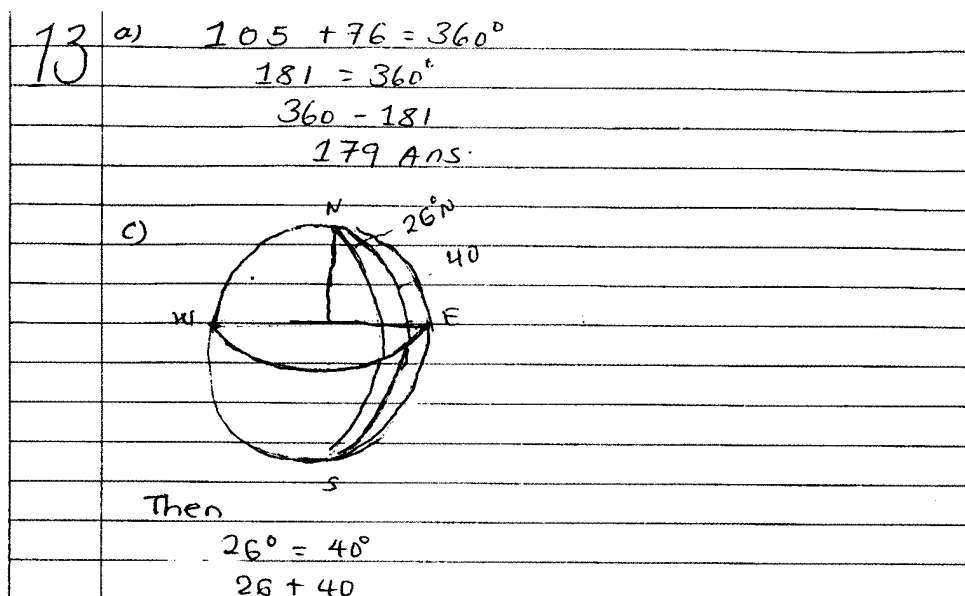 13 a) 105 + 76 = 360°
181 = 360°
360 - 181
179 Ans.
c) N
26°N
40
W E
S
Then
26° = 40°
26 + 40